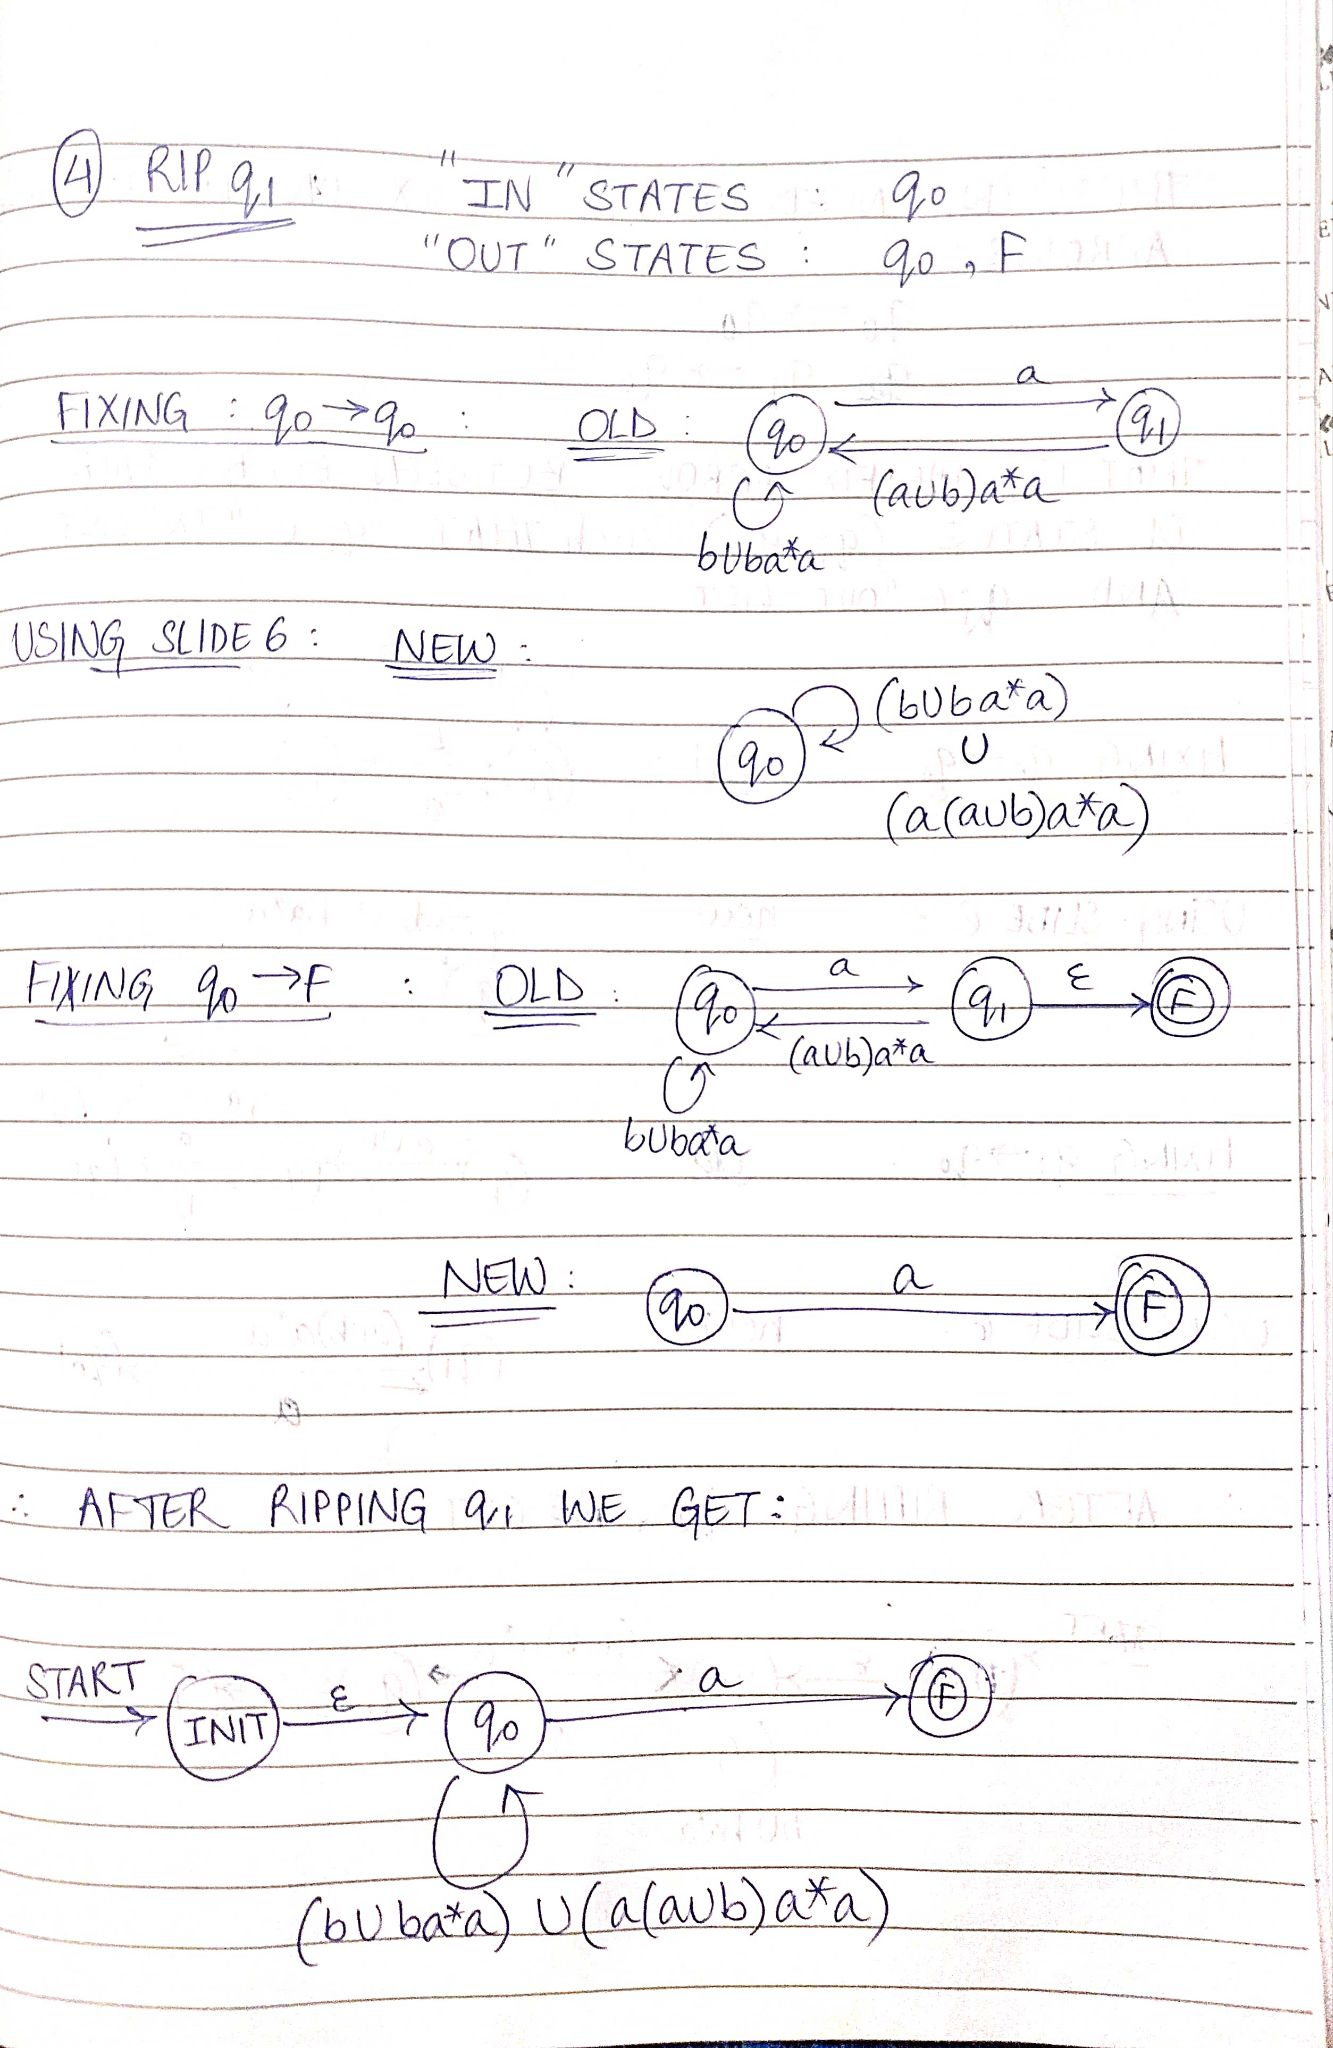 ④ RIP q1 : "IN" STATES : q0
"OUT" STATES : q0, F
FIXING : q0 → q0 : OLD : q0 a q1
(a∪b)a*a
b∪ba*a
USING SLIDE 6 : NEW :
q0 (b∪ba*a)
∪
(a(a∪b)a*a)
FIXING q0 → F : OLD : q0 a q1 ε F
(a∪b)a*a
b∪ba*a
NEW : q0 a F
∴ AFTER RIPPING q1 WE GET :
START INIT ε q0 a F
(b∪ba*a) ∪ (a(a∪b)a*a)